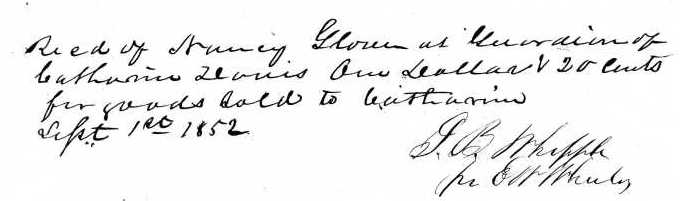 Recd of Nancy Glover as Guardian of
Catharine Davis One Dollar & 20 cents
for goods sold to Catharine
Sept. 1st 1852
J. B. Whipple
per E W Wheeler